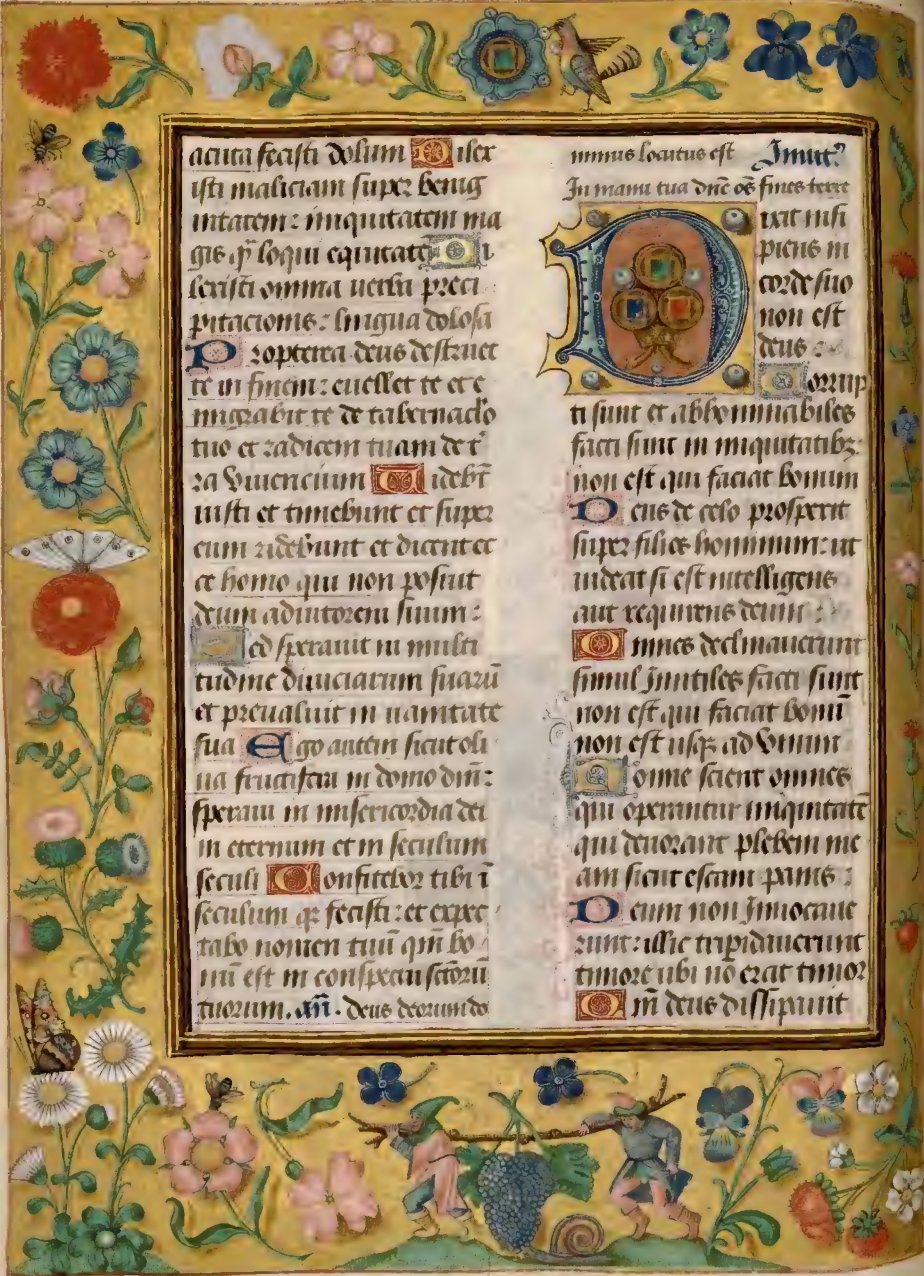 acuta fecisti dolum Dilex
isti maliciam super benig
nitatem : iniquitatem ma
gis qͥ loqui equitatē Di
lexisti omnia uerba preci
pitacionis : lingua dolosa
Propterea deus destruet
te in finem : euellet te et e
migrabit te de tabernaclo
tuo et radicem tuam de t̄
ra viuencium Videbt̄
iusti et timebunt et super
eum ridebunt et dicent ec
ce homo qui non posuit
deum adiutorem suum :
Sed sperauit in multi
tudine diuiciarum suarū
et preualuit in uanitate
sua Ego autem sicut oli
ua fructifera in domo dnī :
speraui in misericordia dei
in eternum et in seculum
seculi Confitebor tibi ī
seculum qꝛ fecisti : et expec
tabo nomen tuū qm̄ bo
nū est in conspectu sctōrū
tuorum . añ . deus deorum do
minus locutus est Inuit͛
In manu tua dn̄e oēs fines terre
Dixit insi
piens in
corde suo
non est
deus
Corrup
ti sunt et abhominabiles
facti sunt in iniquitatibꝫ
non est qui faciat bonum
Deus de celo prosperit
super filios hominum : ut
uideat si est intelligens
aut requirens deum :
Omnes declinauerunt
simul Inutiles facti sunt
non est qui faciat bonū
non est usqꝫ ad vnum
Nonne scient omnes
qui operantur iniquitatē
qui deuorant plebem me
am sicut escam panis :
Deum non Inuocaue
runt : illic tripidauerunt
timore ubi nō erat timor
Qm̄ deus dissipauit